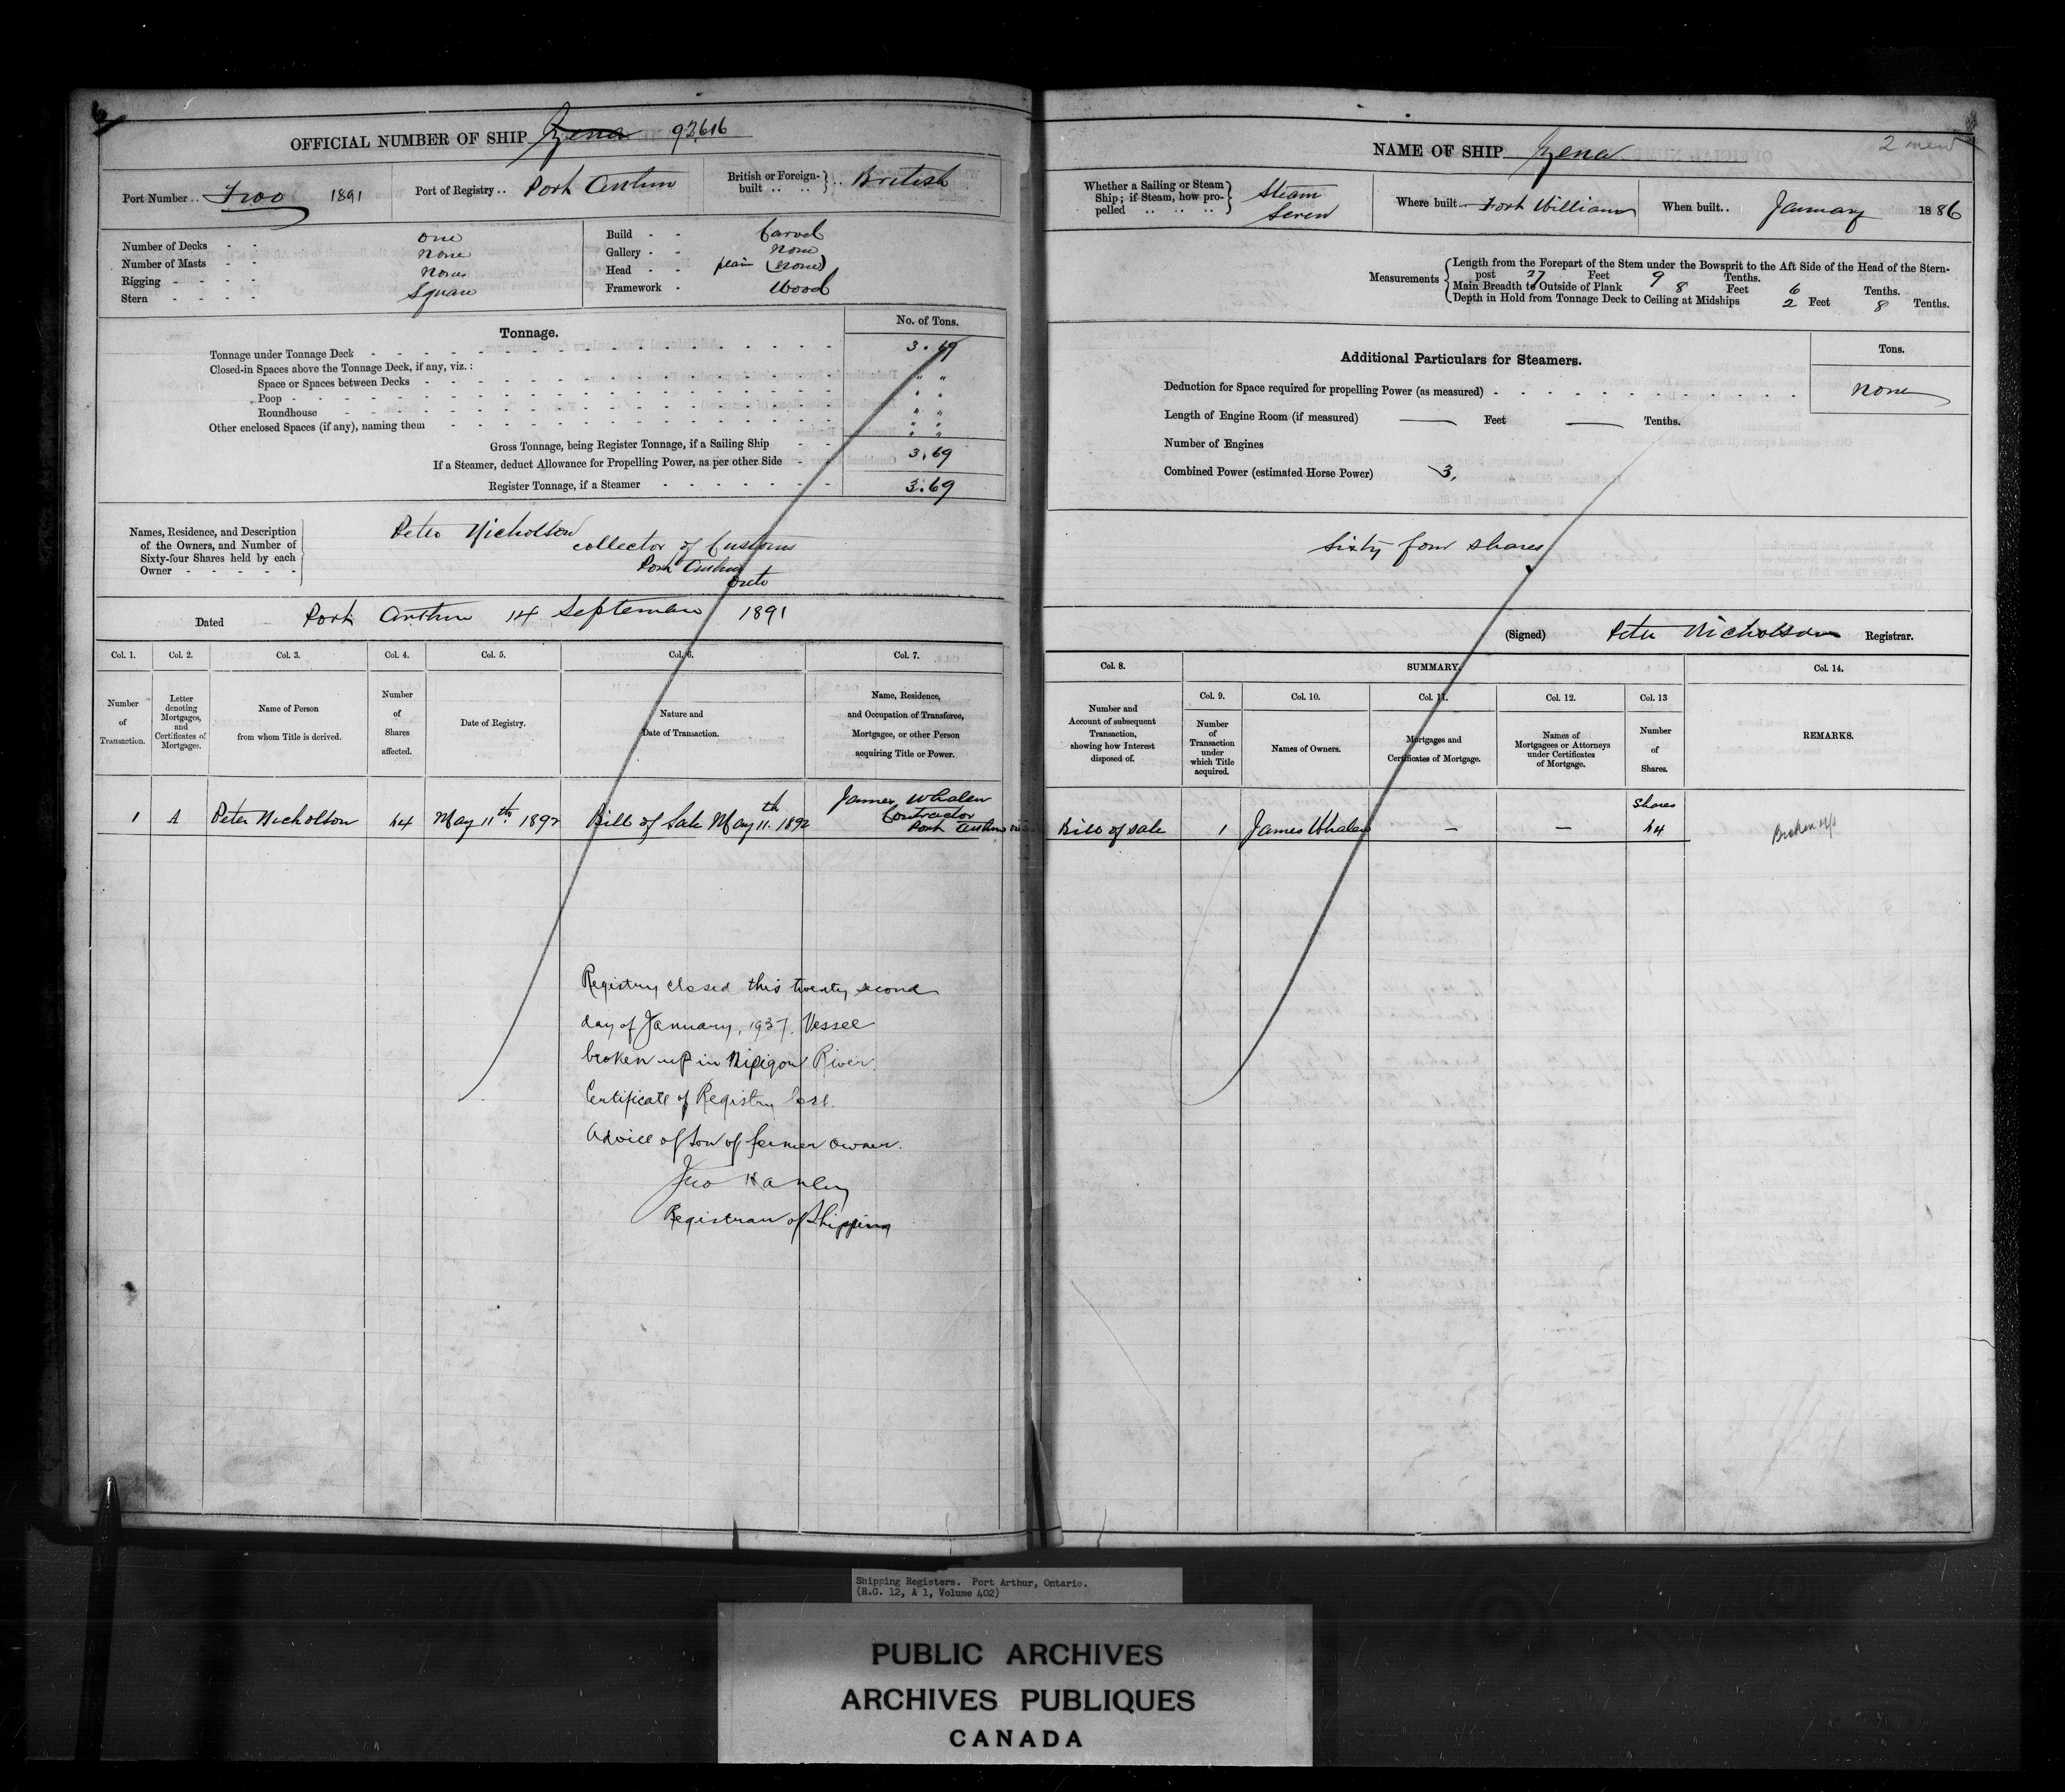 6
OFFICIAL NUMBER OF SHIP Zena 92616
Port Number .. Two 1891 Port of Registry .. Port Arthur British or Foreign-built .. .. } .. British
Number of Decks - - one
Number of Masts - - none
Rigging - - - - none
Stern - - - - Square
Build - - Carvel
Gallery - - none
Head - - plain (none)
Framework - Wood
Tonnage. No. of Tons.
Tonnage under Tonnage Deck 3.69
Closed-in Spaces above the Tonnage Deck, if any, viz. :
Space or Spaces between Decks " "
Poop " "
Roundhouse " "
Other enclosed Spaces (if any), naming them " "
Gross Tonnage, being Register Tonnage, if a Sailing Ship 3.69
If a Steamer, deduct Allowance for Propelling Power, as per other Side
Register Tonnage, if a Steamer 3.69
Names, Residence, and Description
of the Owners, and Number of
Sixty-four Shares held by each
Owner - - - - -
Peter Nicholson
collector of Customs
Port Arthur
Onto
Dated Port Arthur 14 September 1891
Col. 1. Col. 2. Col. 3. Col. 4. Col. 5. Col. 6. Col. 7.
Number of Transaction.
Letter denoting Mortgages, and Certificates of Mortgages.
Name of Person from whom Title is derived.
Number of Shares affected.
Date of Registry.
Nature and Date of Transaction.
Name, Residence, and Occupation of Transferee, Mortgagee, or other Person acquiring Title or Power.
1 A Peter Nicholson 64 May 11th 1892 Bill of Sale May 11th 1892 James Whalen
Contractor
Port Arthur
Registry closed this twenty second
day of January, 1937. Vessel
broken up in Nipigon River.
Certificate of Registry lost.
Advice of son of former owner.
Jno Hanley
Registrar of Shipping
NAME OF SHIP Zena
2 men
Whether a Sailing or Steam Ship; if Steam, how propelled .. .. .. } Steam Screw Where built .. Fort William When built .. January 1886
Measurements
Length from the Forepart of the Stem under the Bowsprit to the Aft Side of the Head of the Stern-
post 27 Feet 9 Tenths.
Main Breadth to Outside of Plank 8 Feet 6 Tenths.
Depth in Hold from Tonnage Deck to Ceiling at Midships 2 Feet 8 Tenths.
Additional Particulars for Steamers. Tons.
Deduction for Space required for propelling Power (as measured) none
Length of Engine Room (if measured) — Feet — Tenths.
Number of Engines
Combined Power (estimated Horse Power) 3,
Sixty four shares
(Signed) Peter Nicholson Registrar.
Col. 8. SUMMARY. Col. 14.
Col. 9. Col. 10. Col. 11. Col. 12. Col. 13
Number and Account of subsequent Transaction, showing how Interest disposed of.
Number of Transaction under which Title acquired.
Names of Owners.
Mortgages and Certificates of Mortgage.
Names of Mortgagees or Attorneys under Certificates of Mortgage.
Number of Shares.
REMARKS.
Shares
Bill of sale 1 James Whalen — — 64 Broken up
Shipping Registers. Port Arthur, Ontario.
(R.G. 12, A 1, Volume 402)
PUBLIC ARCHIVES
ARCHIVES PUBLIQUES
CANADA